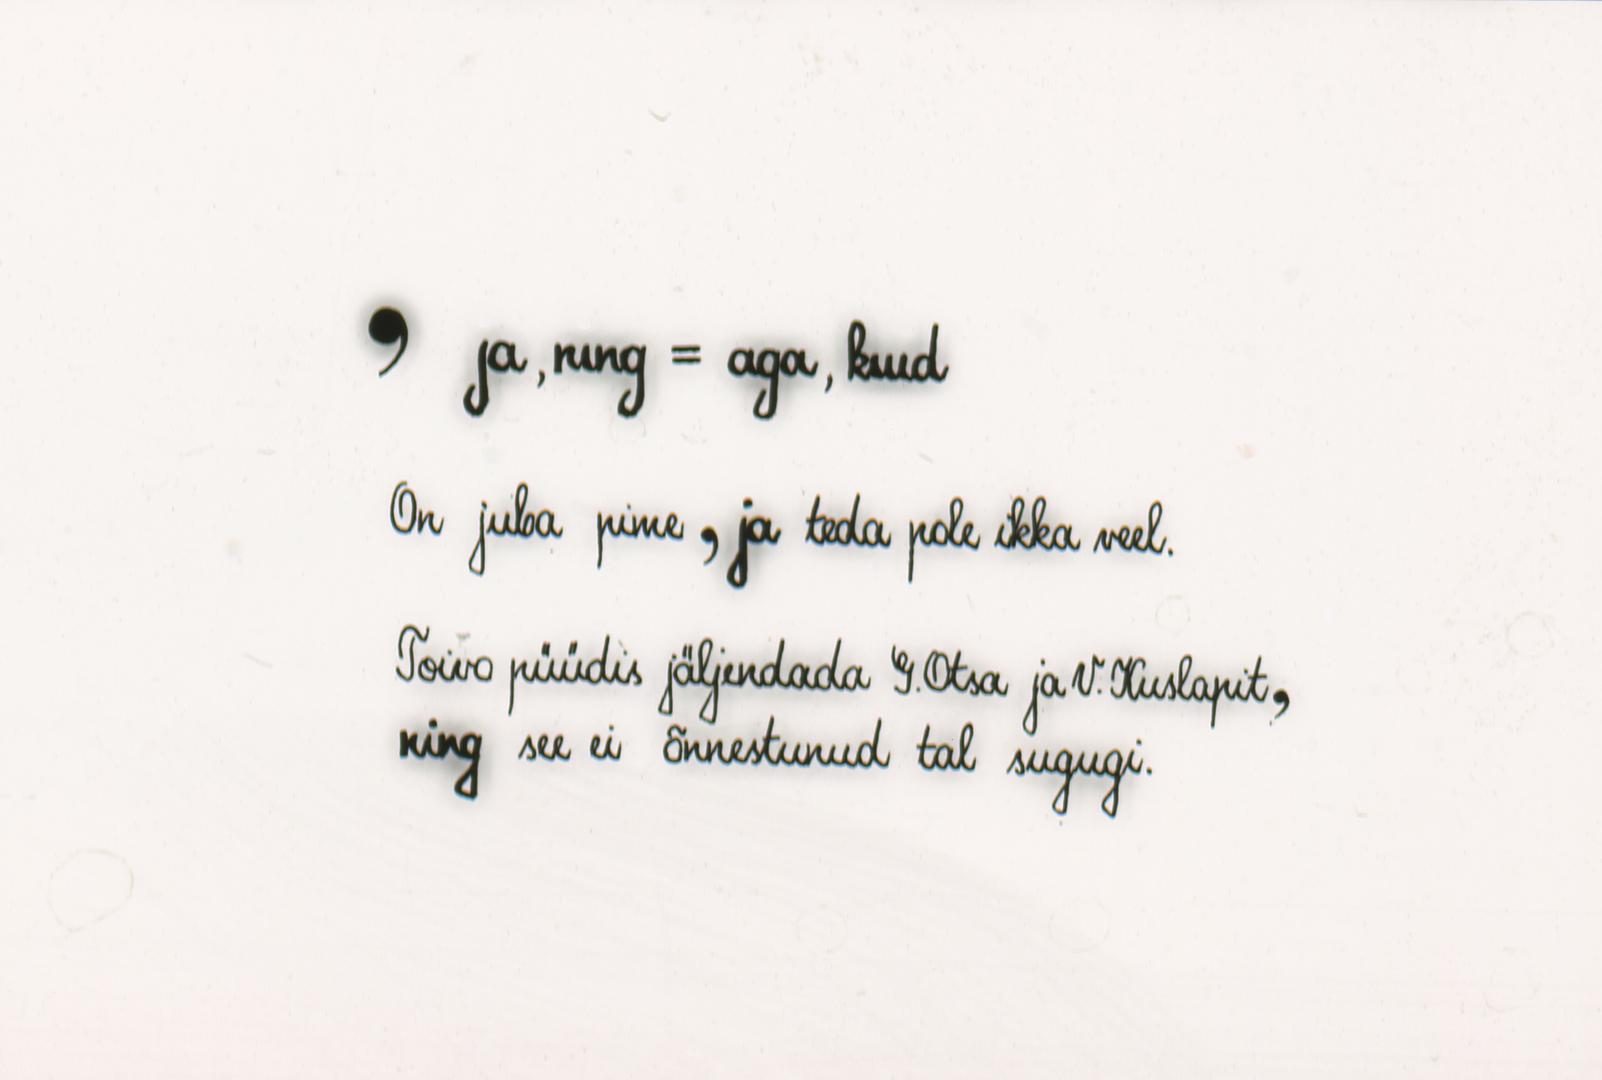 , ja, ning = aga, kuid
On juba pime, ja teda pole ikka veel.
Toivo püüdis jäljendada G. Otsa ja V. Kuslapit,
ning see ei õnnestunud tal sugugi.